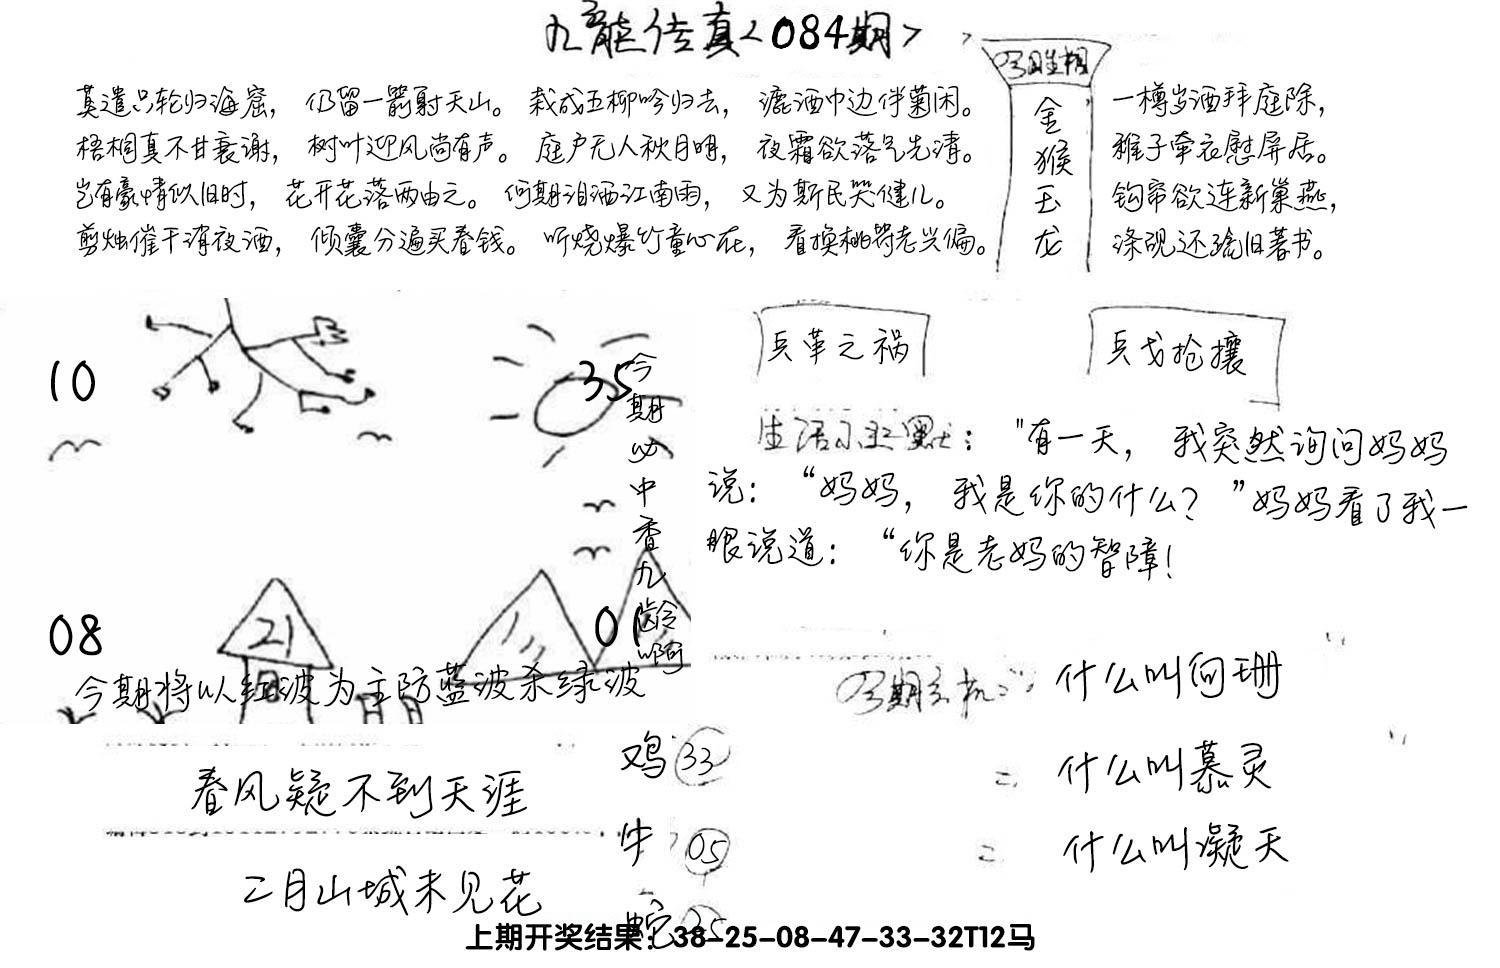 九龍传真<084期>
莫遣只轮归海窟，仍留一箭射天山。栽成五柳吟归去，漉酒巾边伴菊闲。
梧桐真不甘衰谢，树叶迎风尚有声。庭户无人秋月明，夜霜欲落气先清。
岂有豪情似旧时，花开花落两由之。何期泪洒江南雨，又为斯民哭健儿。
剪烛催干消夜酒，倾囊分遍买春钱。听烧爆竹童心在，看换桃符老兴偏。
今期生相
金
猴
玉
龙
一樽岁酒拜庭除，
稚子牵衣慰屏居。
钩帘欲连新巢燕，
涤砚还疏旧著书。
10
35
08
21
01
今期必中香九龄啊
今期将以红波为主防蓝波杀绿波
兵革之祸
兵戈抢攘
生活小幽默："有一天，我突然询问妈妈
说：“妈妈，我是你的什么？”妈妈看了我一
眼说道：“你是老妈的智障！
春风疑不到天涯
二月山城未见花
鸡 33
牛 05
蛇 25
今期玄机
什么叫向珊
二 什么叫慕灵
二 什么叫凝天
上期开奖结果：38-25-08-47-33-32T12马